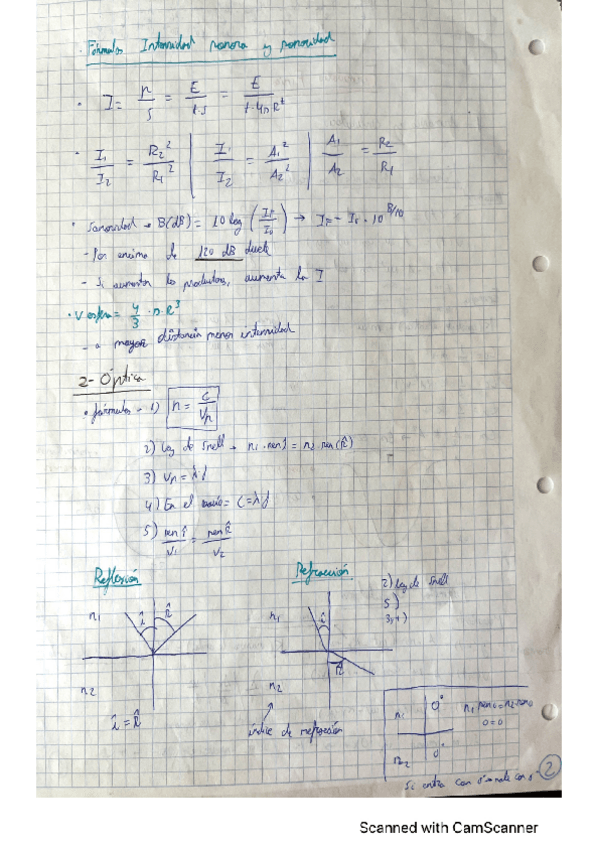 · Fórmulas Intensidad sonora y sonoridad
· I = P/S = E/t·S = E/t·4πR²
· I₁/I₂ = R₂²/R₁² | I₁/I₂ = A₁²/A₂² | A₁/A₂ = R₂/R₁
· Sonoridad → B(dB) = 10 log (IF/I₀) → IF = I₀ · 10^B/10
- Por encima de 120 dB duele
- Si aumentan los productos, aumenta la I
· V esfera = 4/3 · π · R³
- a mayor distancia menor intensidad
2- Óptica
· fórmulas - 1) n = c/Vn
2) Ley de Snell → n₁ · sen î = n₂ · sen (R̂)
3) Vn = λ·f
4) En el vacío = C = λ·f
5) sen î/V₁ = sen R̂/V₂
Reflexión
n₁ î R̂
n₂
î = R̂
Refracción
n₁ î
R̂
n₂
índice de refracción
2) Ley de Snell
5)
3,4)
n₁ 0° n₁ sen 0 = n₂ sen 0
0=0
n₂ 0°
Si entra con 0° sale con 0°
2
Scanned with CamScanner